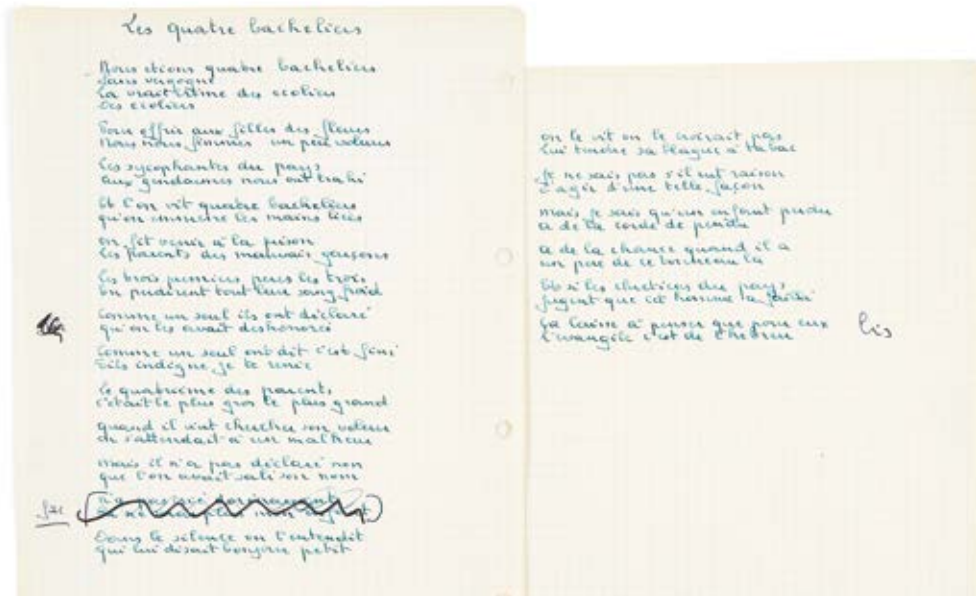 Les quatre bacheliers
Nous étions quatre bacheliers
Sans vergogne
La vraie crème des écoliers
Des écoliers
Pour offrir aux filles des fleurs
Nous nous fîmes un peu voleurs
Les sycophantes du pays
aux gendarmes nous ont trahi
Et l'on vit quatre bacheliers
qu'on emmène les mains liées
on fit venir à la prison
Les parents des mauvais garçons
Les trois premiers pères les trois
En perdirent tout leur sang froid
Comme un seul ils ont déclaré
qu'on les avait deshonoré
Comme un seul ont dit c'est fini
Fils indigne je te renie
Le quatrième des parents,
c'était le plus gros le plus grand
quand il vint chercher son voleur
on s'attendait à un malheur
mais il n'a pas déclaré non
que l'on avait sali son nom
Dans le silence on l'entendit
qui lui disait bonjour petit
on le vit on le croirait pas
Lui tendre sa blague à tabac
Je ne sais pas s'il eut raison
D'agir d'une telle façon
mais je sais qu'un enfant perdu
a de la corde de pendu
a de la chance quand il a
un père de ce tonneau là
Et si les chrétiens du pays,
jugent que cet homme a failli
ça laisse à penser que pour eux
L'évangile c'est de l'hébreu
bis